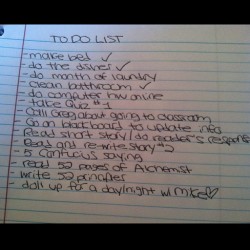 TO DO LIST
- make bed ✓
- do the dishes ✓
- do month of laundry
- clean bathroom ✓
- do computer hw online
- take Quiz #1
- Call Greg about going to classroom
- Go on blackboard to update info
- Read short story/do reader's response
- Read and re-write story #2
- 5 Confucius saying
- read 52 pages of Alchemist
- write 52 principles
- doll up for a day/night w/ Mike ♡